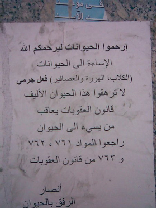 ارحموا الحيوانات ليرحمكم الله
الإساءة الى الحيوانات
(الكلاب، الهررة والعصافير) فعل جرمي
لا ترهقوا هذا الحيوان الأليف
قانون العقوبات يعاقب
من يسيء الى الحيوان
راجعوا المواد ٧٦١، ٧٦٢
و ٧٦٣ من قانون العقوبات
أنصار
الرفق بالحيوان